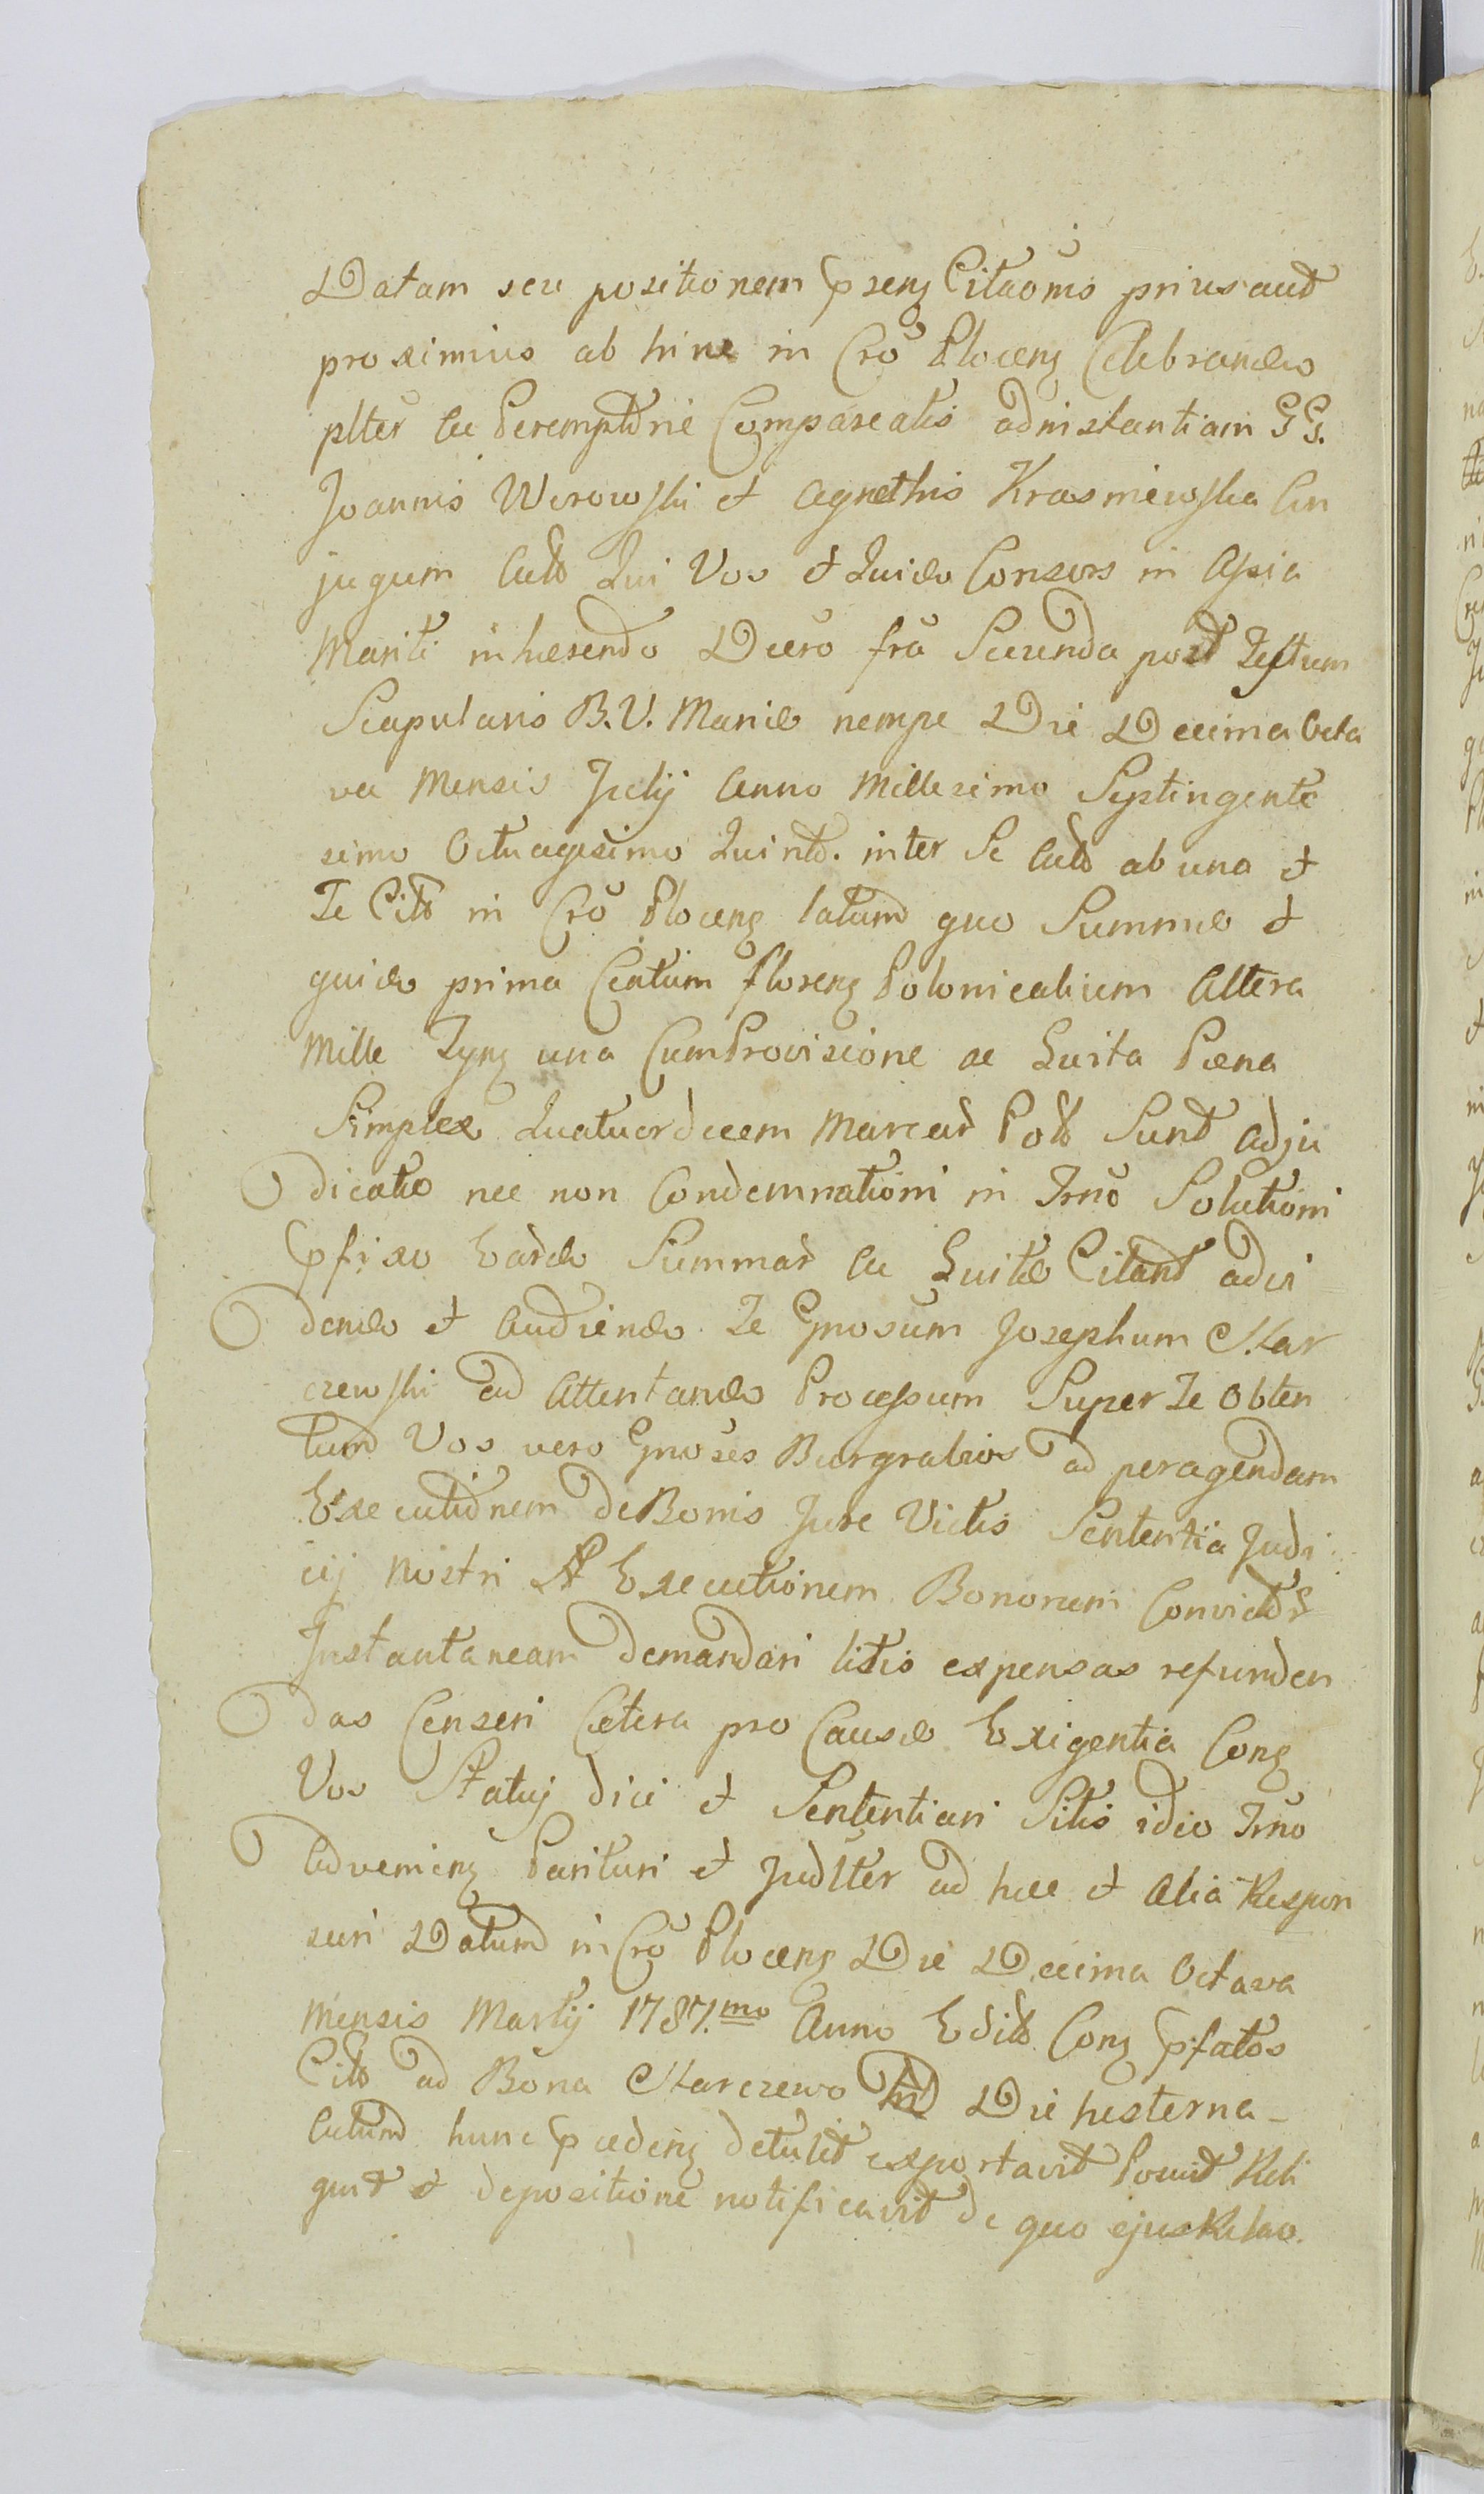 Datam seu positionem pseng Citaoms prius aud
proximius ab hinc in Cro Ploceng Celebrandis
plter ac Peremptorie Compareatis ad instantiam GG.
Joannis Werowski et Agnethis Krasniewska Con
jugum Actō Qui Vos et Quidē Consors in Assia
Mariti inhærendo Decro fra Secunda post Festum
Scapularis B. V. Mariæ nempe Die Decima Octa
va Mensis Julij Anno Millesimo Septingente
simo Octuagesimo Quintō. inter Se Actō ab una et
Te Citō in Cro Ploceng latum quo Summæ et
quidē prima Centum floreng Polonicalium Altera
Mille Tyng una Cum Provisione ac Luita Pæna
Simplex Quatuordecem Marcar Polō Sunt adju
dicatæ nec non Condemnationi in Trno Solutioni
pfixo Eardē Summar ac Luitæ Citand ad vi
dendē et Audiendē Te Gnosum Josephum Mar
czewski ad Attentandē Processum Super Te Obten
tum Vos vero Gnoses Burgrabios ad peragendam
Executionem de Bonis Jure Victis Sententia Judi
cij Nostri Executionem Bonorum Convictor
Instantaneam demandari litis expensas refunden
das Censeri Cætera pro Causæ Exigentia Cong
Vos Statuj dici et Sententiari Sitis ideo Trno
Advenieng Parituri et Judlter ad hæc et Alia Respon
suri Datum in Cro Ploceng Die Decima Octava
Mensis Martij 1787.mo Anno Editō Cong pfatos
Citō ad Bona Marczewo Die hesterna -
Actum hunc pædeng detulit exportavit Posuit Reli
quit et depositione notificavit de quo ejus Relao.